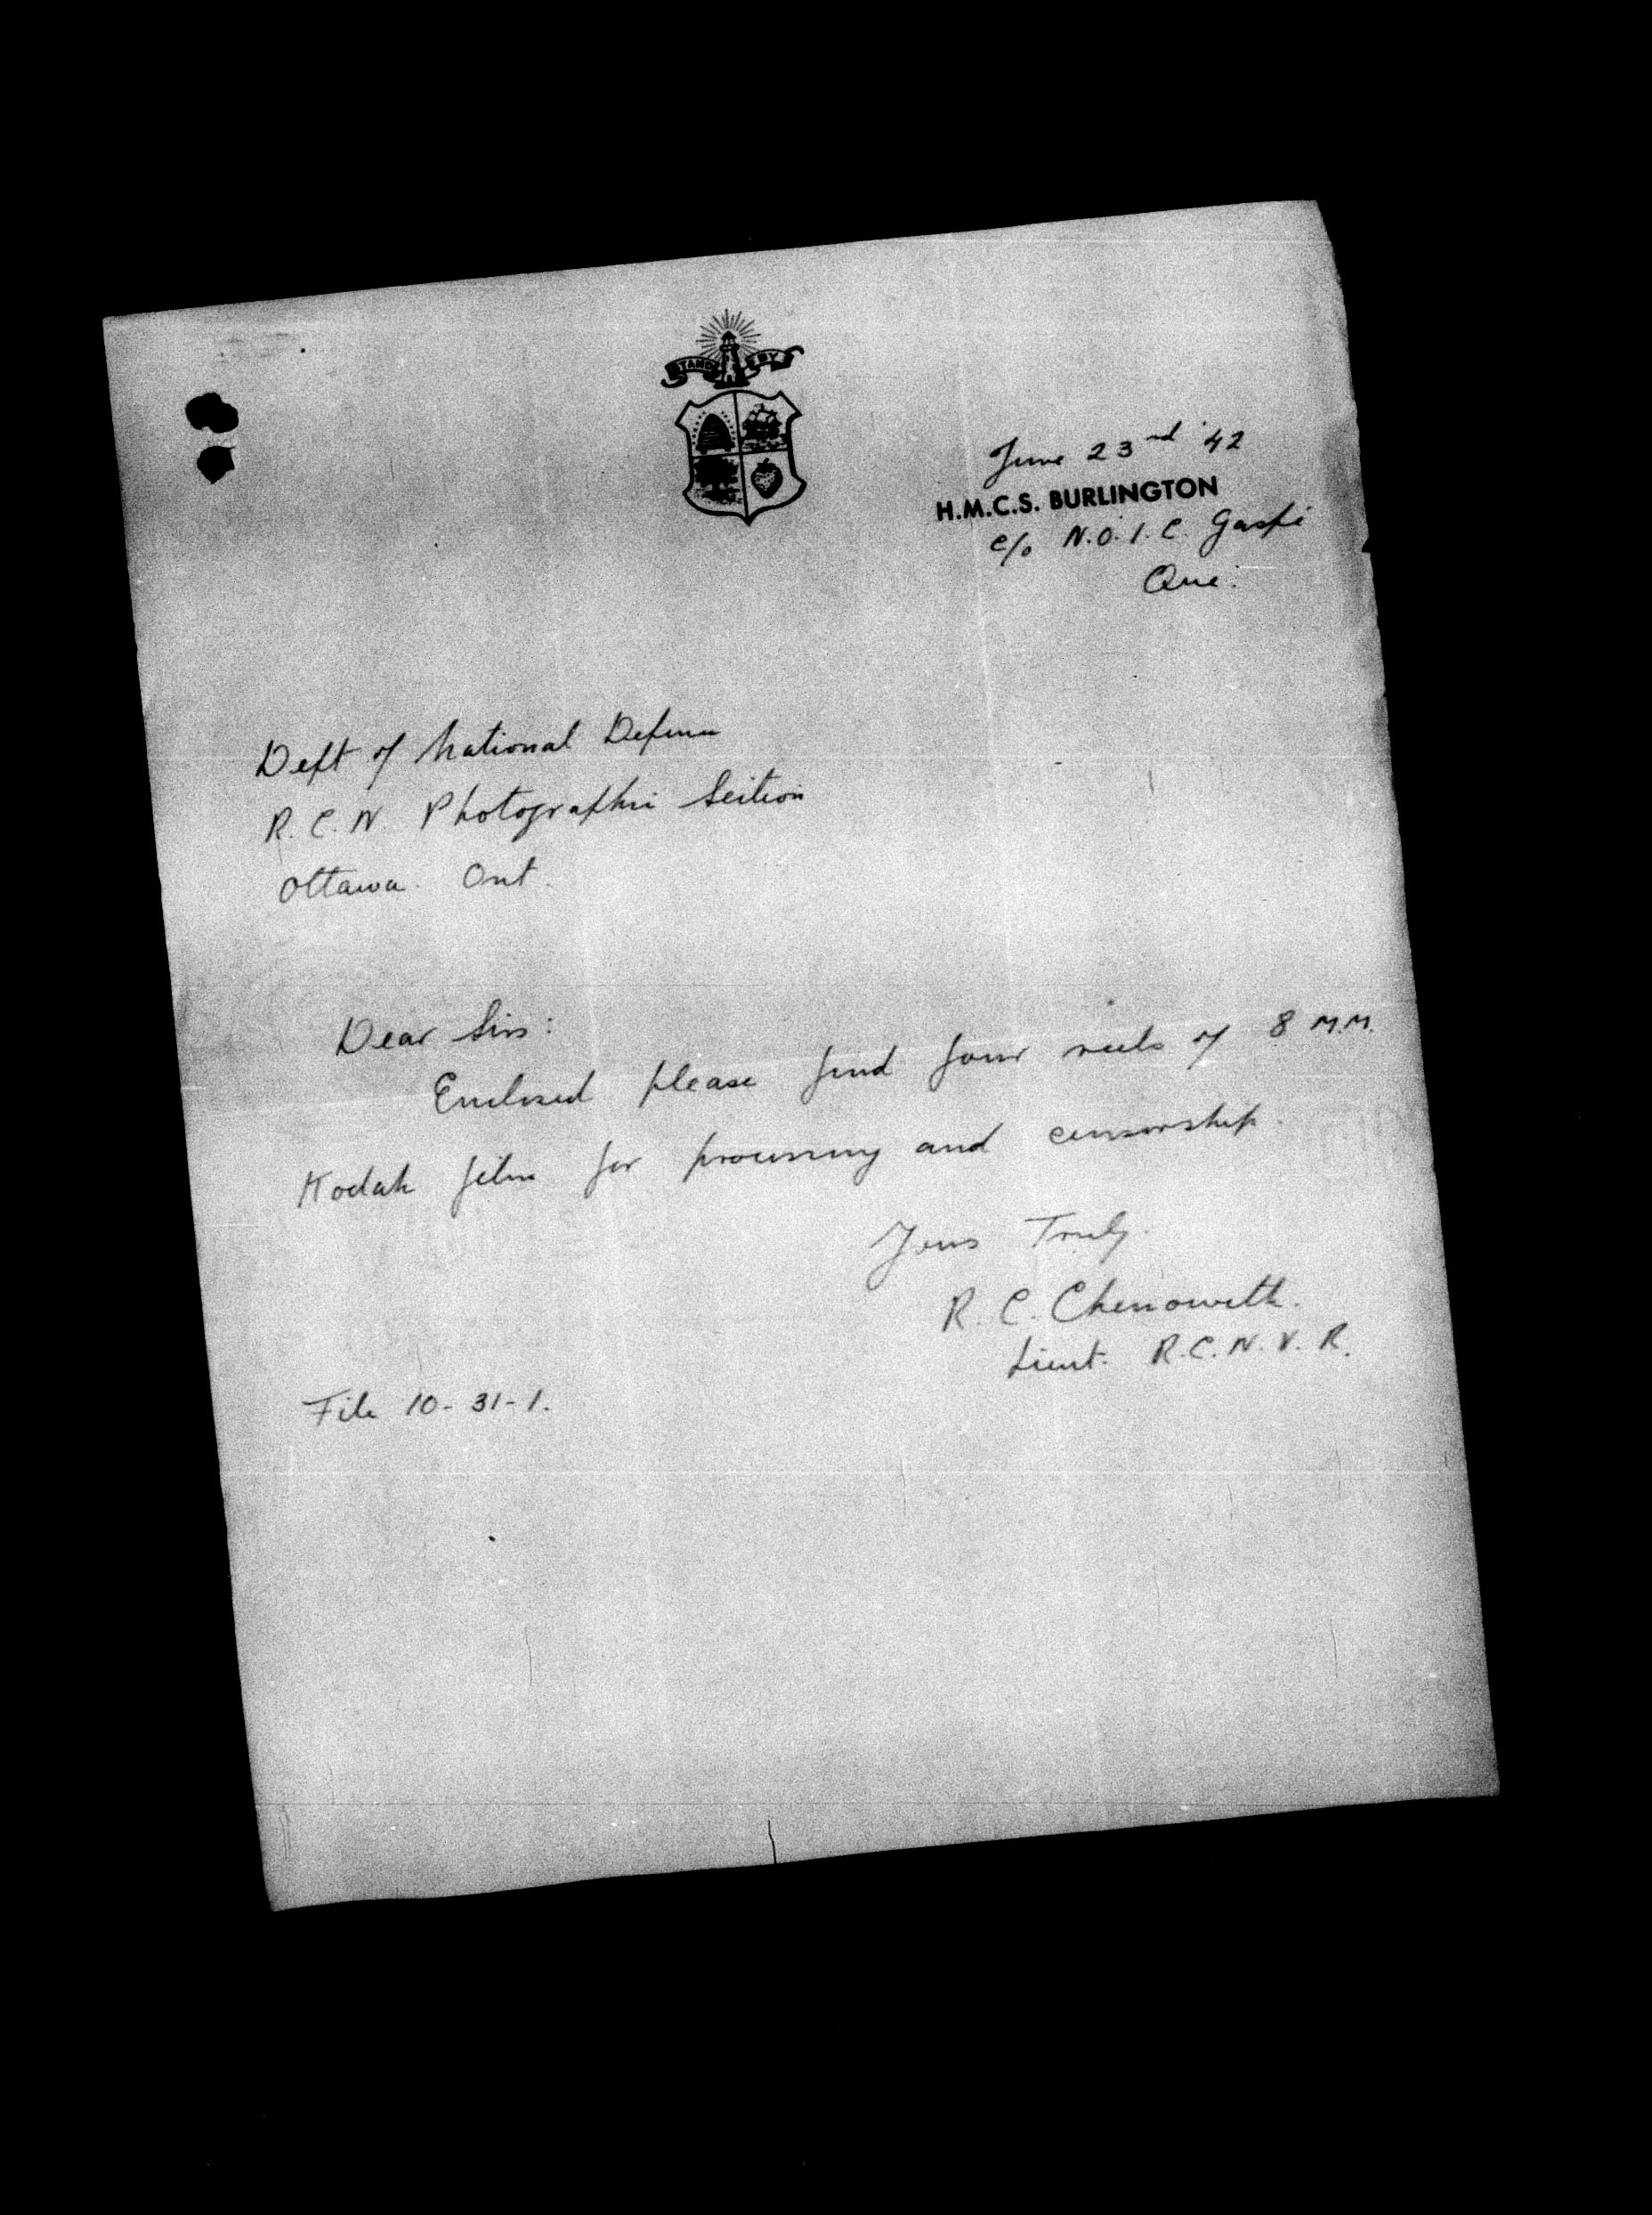 STAND BY
June 23rd '42
H.M.C.S. BURLINGTON
c/o N.O.I.C. Gaspé
Que.
Dept of National Defence
R.C.N. Photographic Section
Ottawa. Ont.
Dear Sirs:
Enclosed please find four reels of 8 M.M.
Kodak film for processing and censorship.
Yours Truly.
R. C. Chenoweth.
Lieut. R.C.N.V.R.
File 10-31-1.